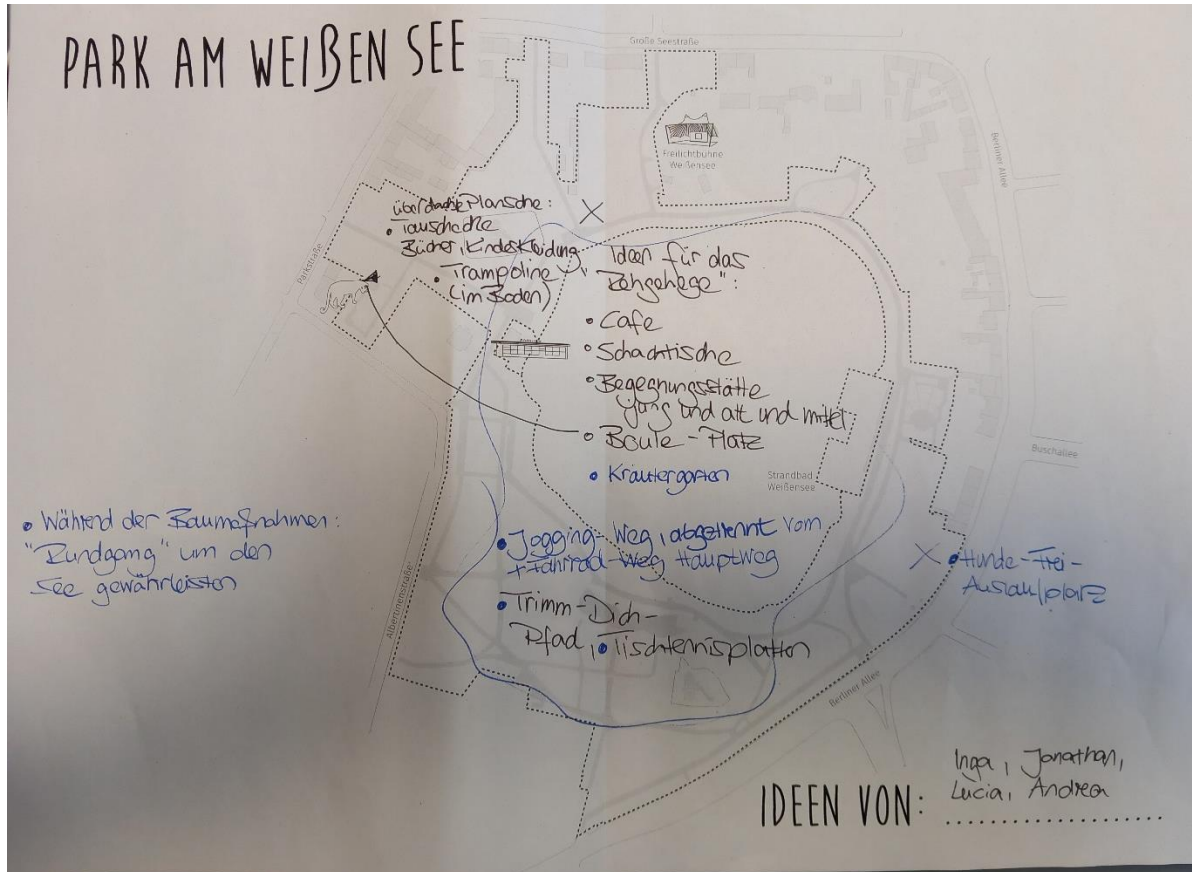 PARK AM WEIßEN SEE
Große Seestraße
Freilichtbühne
Weißensee
Berliner Allee
Parkstraße
überdachte Plansche:
• Tauschecke
Bücher, Kinderkleidung
• Trampoline
(im Boden)
Ideen für das
"Rehgehege":
• Cafe
• Schachtische
• Begegnungsstätte
jung und alt und mittel
• Boule-Platz
• Kräutergarten
Strandbad
Weißensee
Buschallee
• Während der Baumaßnahmen:
"Rundgang" um den
See gewährleisten
• Jogging-Weg, abgetrennt vom
+ Fahrrad-Weg Hauptweg
• Hunde-Frei-
Auslaufplatz
Albertinenstraße
• Trimm-Dich-
Pfad, • Tischtennisplatten
Berliner Allee
IDEEN VON:
Inga, Jonathan,
Lucia, Andrea